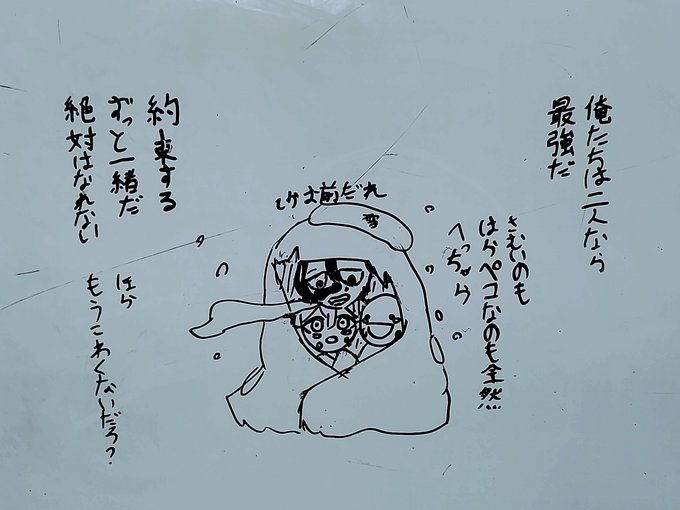 俺たちは二人なら
最強だ
さむいのも
はらペコなのも全然
へっちゃら
雪
約束する
ずっと一緒だ
絶対はなれない
ほら
もうこわくないだろ?